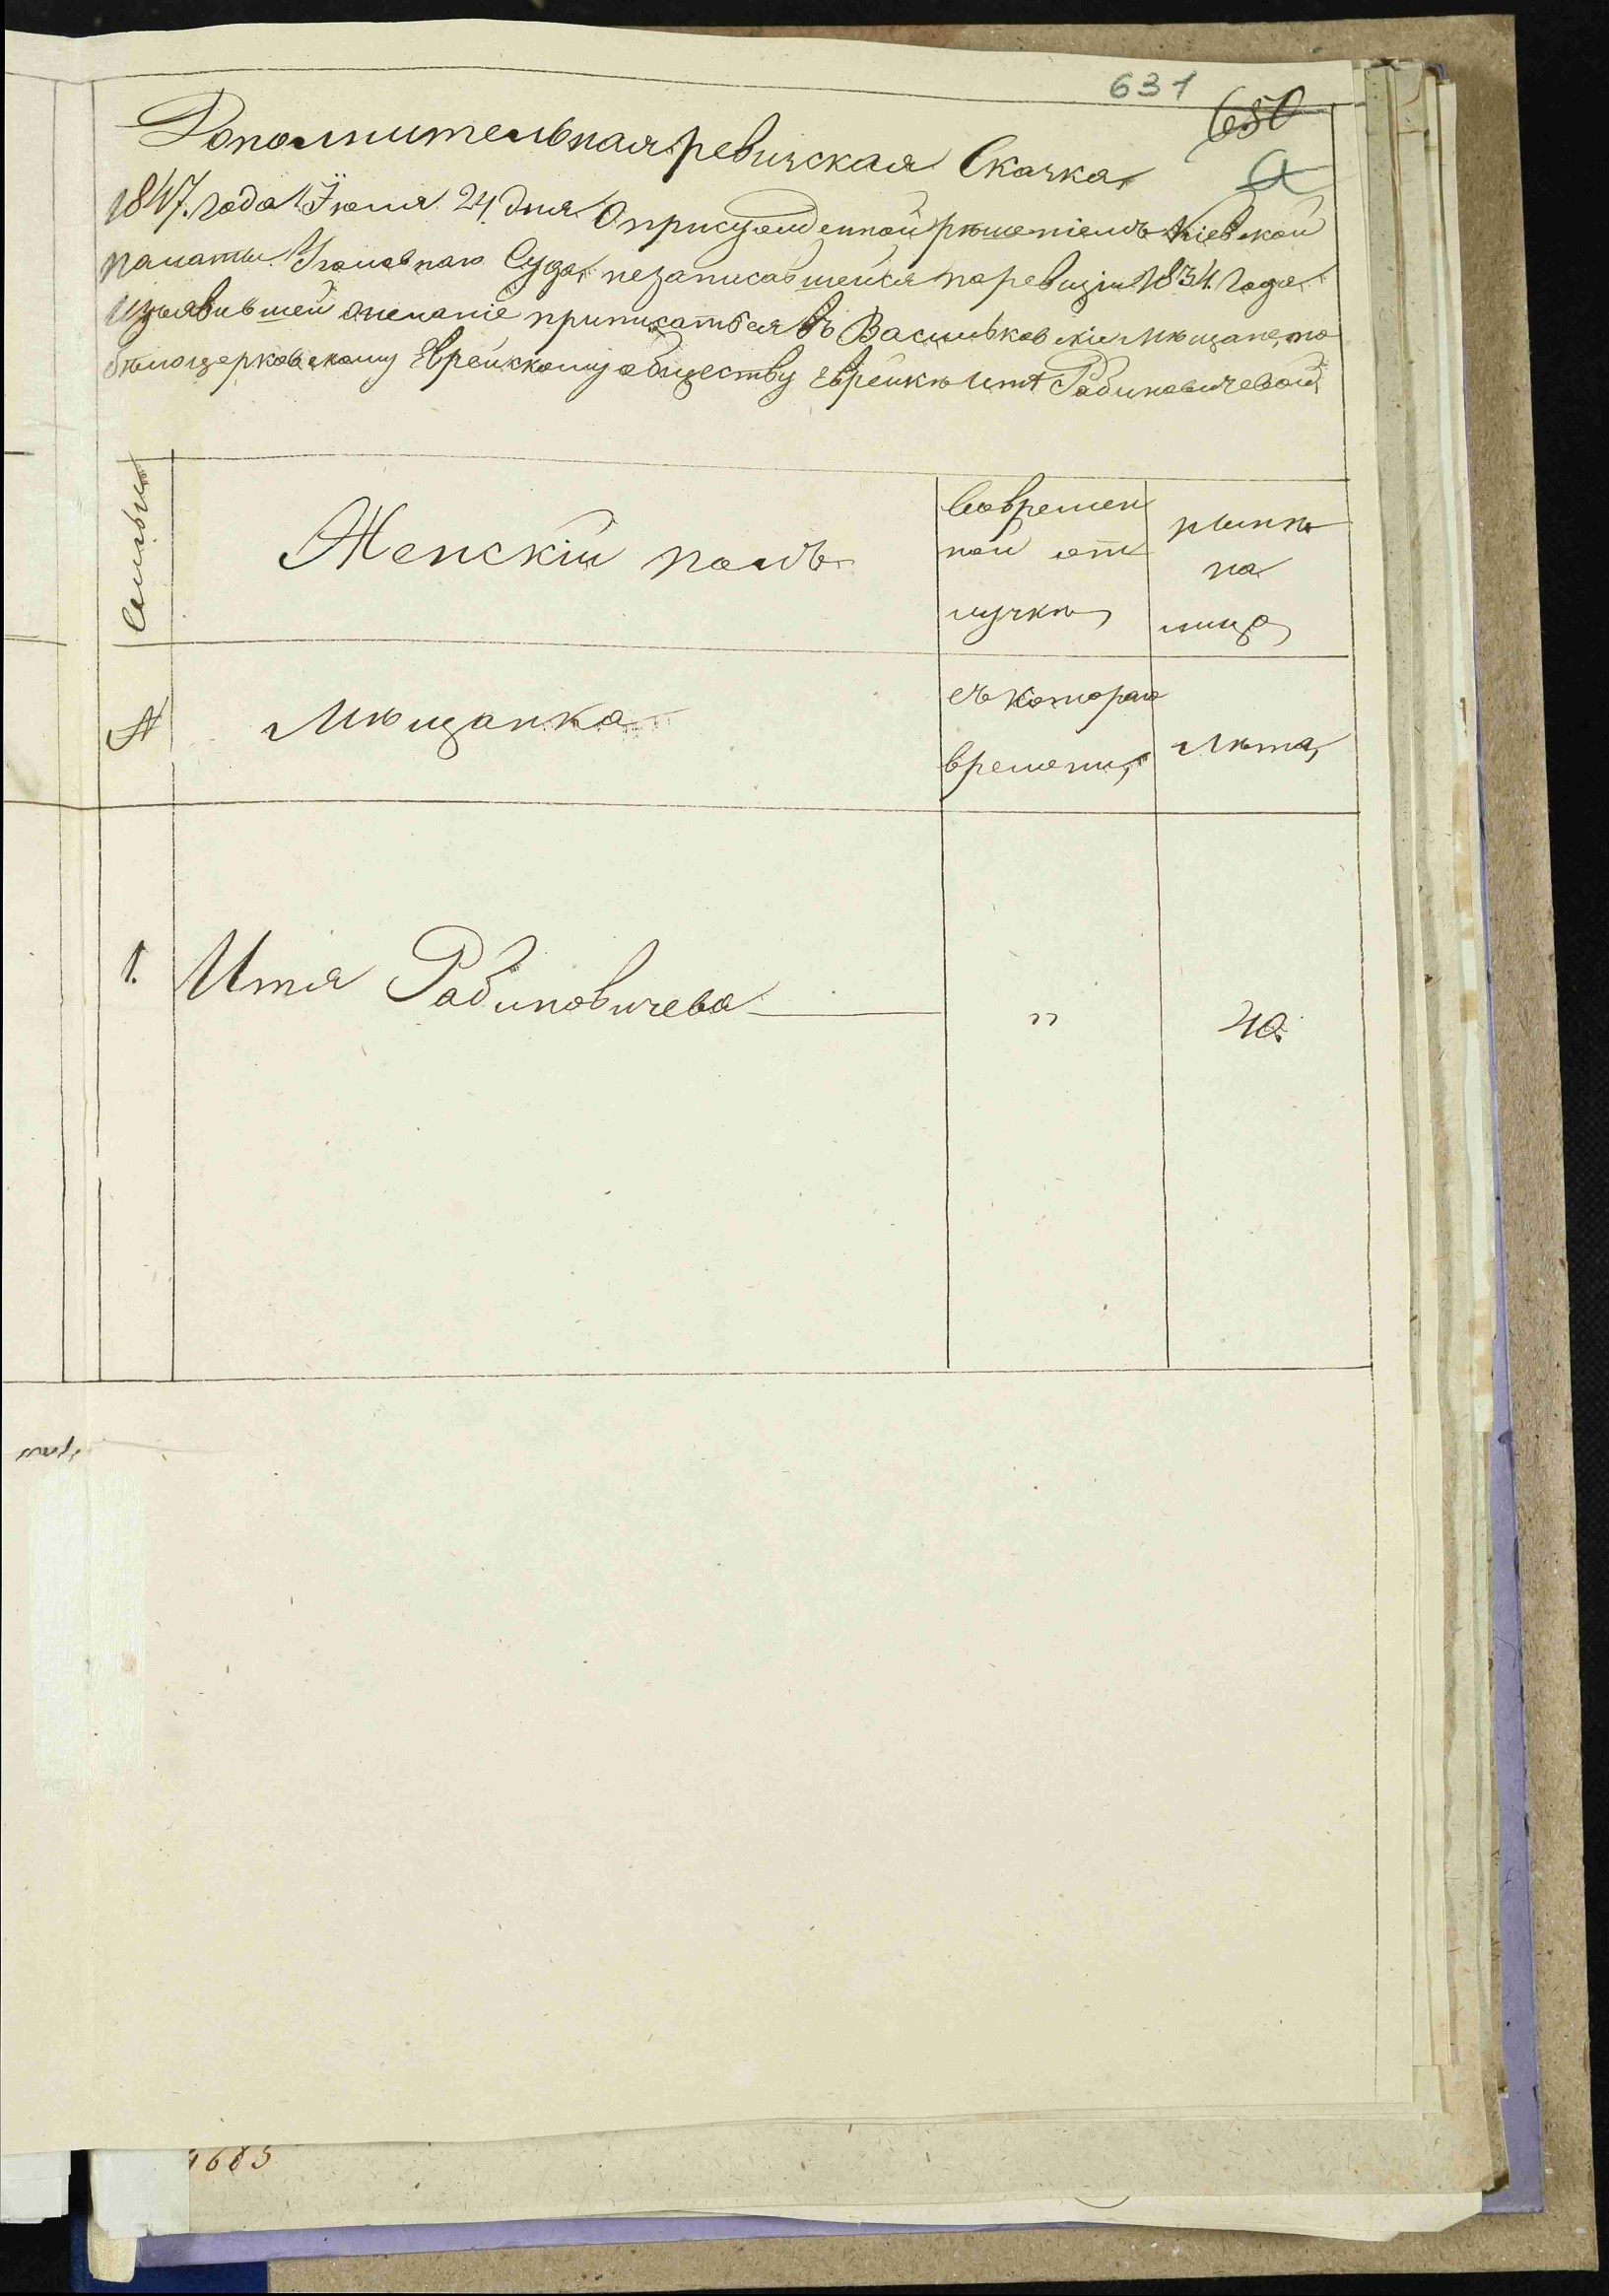 631
650
Дополнительная ревизская Скаска
1847. года Июня 24 дня О присужденной рѣшенiемъ Кiевской
палаты Уголовнаго Суда, незаписавшейся по ревизiи 1834. года
изъявившей желанiе приписаться въ Васильковскiе мѣщане, по
бѣлоцерковскому Еврейскому обществу Еврейкѣ Итѣ Рабиновичевой
Семьи
Женскiй полъ
Вовремен
ной от
лучкѣ
нынѣ
на
лицо
№
Мѣщанка
съ котораго
времени
Лѣта
1.
Итя Рабиновичева
"
40.
1685